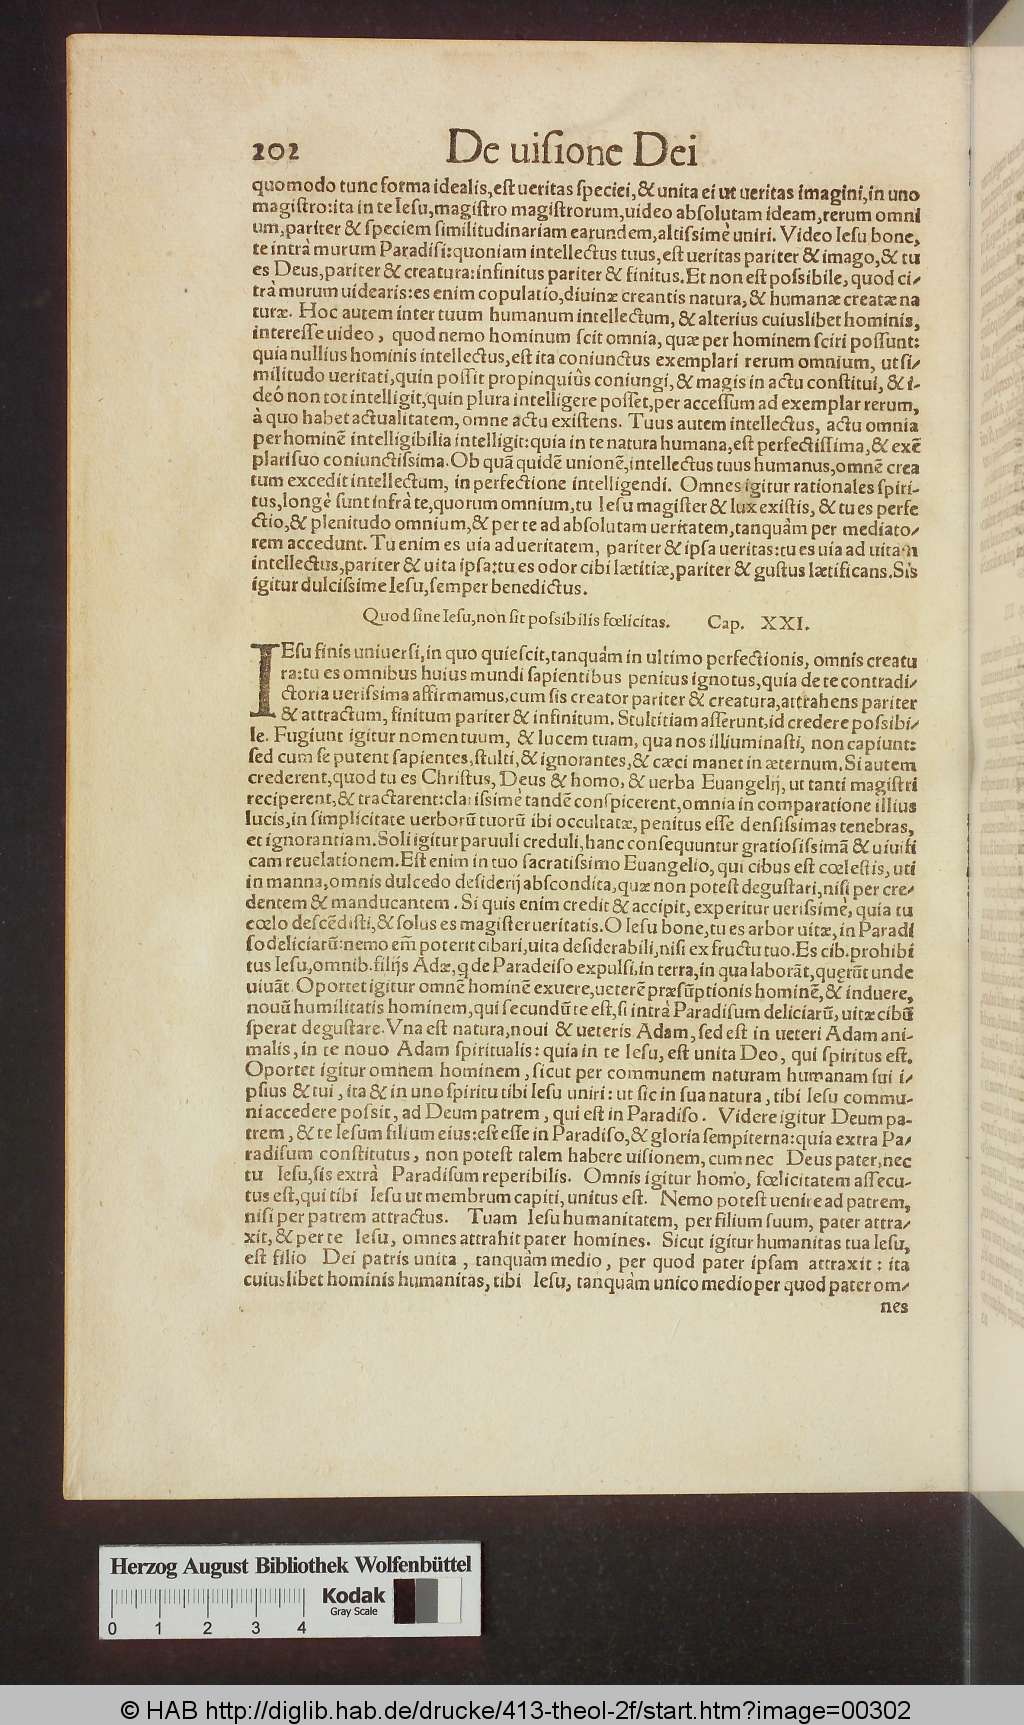 202 De uisione Dei
quomodo tunc forma idealis, est ueritas speciei, & unita ei ut ueritas imagini, in uno
magistro: ita in te Iesu, magistro magistrorum, uideo absolutam ideam, rerum omni
um, pariter & speciem similitudinariam earundem, altissimè uniri. Video Iesu bone,
te intrà murum Paradisi: quoniam intellectus tuus, est ueritas pariter & imago, & tu
es Deus, pariter & creatura: infinitus pariter & finitus. Et non est possibile, quod ci-
trà murum uidearis: es enim copulatio, diuinæ creantis natura, & humanæ creatæ na
turæ. Hoc autem inter tuum humanum intellectum, & alterius cuiuslibet hominis,
interesse uideo, quod nemo hominum scit omnia, quæ per hominem sciri possunt:
quia nullius hominis intellectus, est ita coniunctus exemplari rerum omnium, ut si-
militudo ueritati, quin possit propinquiùs coniungi, & magis in actu constitui, & i-
deó non tot intelligit, quin plura intelligere posset, per accessum ad exemplar rerum,
à quo habet actualitatem, omne actu existens. Tuus autem intellectus, actu omnia
per hominẽ intelligibilia intelligit: quia in te natura humana, est perfectissima, & exẽ
plari suo coniunctissima. Ob quã quidẽ unionẽ, intellectus tuus humanus, omnẽ crea
tum excedit intellectum, in perfectione intelligendi. Omnes igitur rationales spiri-
tus, longè sunt infrà te, quorum omnium, tu Iesu magister & lux existis, & tu es perfe
ctio, & plenitudo omnium, & per te ad absolutam ueritatem, tanquàm per mediato-
rem accedunt. Tu enim es uia ad ueritatem, pariter & ipsa ueritas: tu es uia ad uitam
intellectus, pariter & uita ipsa: tu es odor cibi lætitiæ, pariter & gustus lætificans. Sis
igitur dulcissime Iesu, semper benedictus.
Quod sine Iesu, non sit possibilis fœlicitas. Cap. XXI.
IEsu finis uniuersi, in quo quiescit, tanquàm in ultimo perfectionis, omnis creatu
ra: tu es omnibus huius mundi sapientibus penitus ignotus, quia de te contradi-
ctoria uerissima affirmamus, cum sis creator pariter & creatura, attrahens pariter
& attractum, finitum pariter & infinitum. Stultitiam asserunt, id credere possibi-
le. Fugiunt igitur nomen tuum, & lucem tuam, qua nos illiuminasti, non capiunt:
sed cum se putent sapientes, stulti, & ignorantes, & cæci manet in æternum. Si autem
crederent, quod tu es Christus, Deus & homo, & uerba Euangelij, ut tanti magistri
reciperent, & tractarent: clarissimè tandẽ conspicerent, omnia in comparatione illius
lucis, in simplicitate uerborũ tuorũ ibi occultatæ, penitus esse densissimas tenebras,
et ignorantiam. Soli igitur paruuli creduli, hanc consequuntur gratiosissimã & uiuifi
cam reuelationem. Est enim in tuo sacratissimo Euangelio, qui cibus est cœlestis, uti
in manna, omnis dulcedo desiderij abscondita, quæ non potest degustari, nisi per cre-
dentem & manducantem. Si quis enim credit & accipit, experitur uerissimè, quia tu
cœlo descẽdisti, & solus es magister ueritatis. O Iesu bone, tu es arbor uitæ, in Paradi
so deliciarũ: nemo em̃ poterit cibari, uita desiderabili, nisi ex fructu tuo. Es cib. prohibi
tus Iesu, omnib. filijs Adæ, q de Paradeiso expulsi, in terra, in qua laborãt, querũt unde
uiuãt. Oportet igitur omnẽ hominẽ exuere, ueterẽ præsũptionis hominẽ, & induere,
nouũ humilitatis hominem, qui secundũ te est, si intrà Paradisum deliciarũ, uitæ cibũ
sperat degustare. Vna est natura, noui & ueteris Adam, sed est in ueteri Adam ani-
malis, in te nouo Adam spiritualis: quia in te Iesu, est unita Deo, qui spiritus est.
Oportet igitur omnem hominem, sicut per communem naturam humanam sui i-
psius & tui, ita & in uno spiritu tibi Iesu uniri: ut sic in sua natura, tibi Iesu commu-
ni accedere possit, ad Deum patrem, qui est in Paradiso. Videre igitur Deum pa-
trem, & te Iesum filium eius: est esse in Paradiso, & gloria sempiterna: quia extra Pa-
radisum constitutus, non potest talem habere uisionem, cum nec Deus pater, nec
tu Iesu, sis extrà Paradisum reperibilis. Omnis igitur homo, fœlicitatem assecu-
tus est, qui tibi Iesu ut membrum capiti, unitus est. Nemo potest uenire ad patrem,
nisi per patrem attractus. Tuam Iesu humanitatem, per filium suum, pater attra-
xit, & per te Iesu, omnes attrahit pater homines. Sicut igitur humanitas tua Iesu,
est filio Dei patris unita, tanquàm medio, per quod pater ipsam attraxit: ita
cuiuslibet hominis humanitas, tibi Iesu, tanquàm unico medio per quod pater om-
nes
Herzog August Bibliothek Wolfenbüttel
Kodak
Gray Scale
0 1 2 3 4
© HAB http://diglib.hab.de/drucke/413-theol-2f/start.htm?image=00302